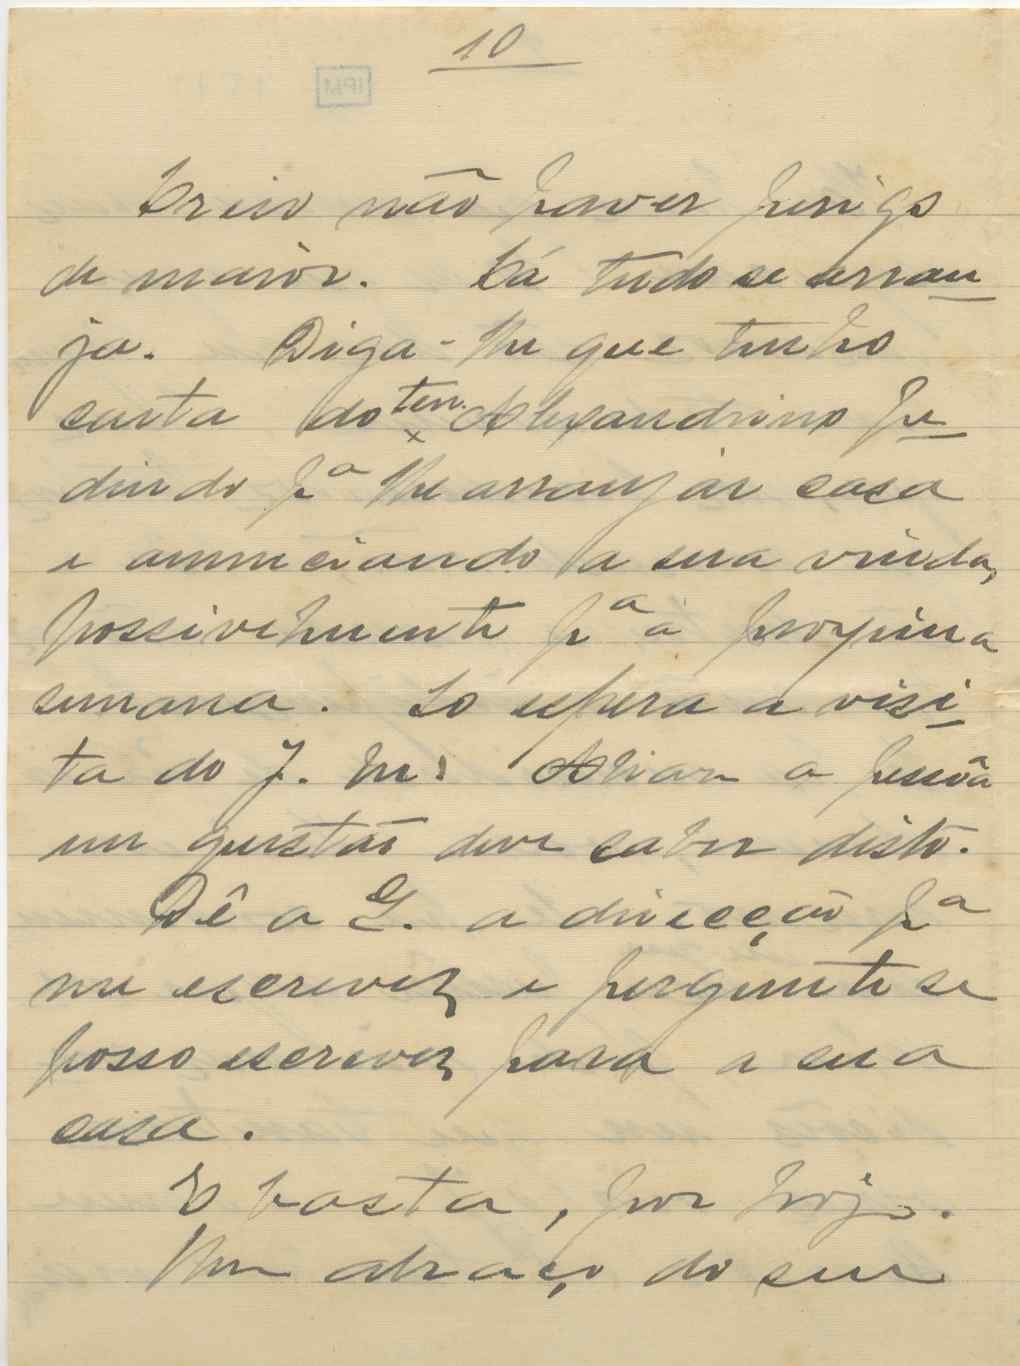 10
Creio não haver perigo
de maior. Cá tudo se arran
ja. Diga-lhe que tenho
carta do ten. Alexandrino pe
dindo pª lhe arranjar casa
e annunciando a sua vinda,
possivelmente pª a proxima
semana. Só espera a visi
ta do J. M. a pessôa
em questão deve saber disto.
Dê a G. a direcção pª
me escrever e pergunte se
posso escrever para a sua
casa.
E basta, por hoje.
Um abraço do seu